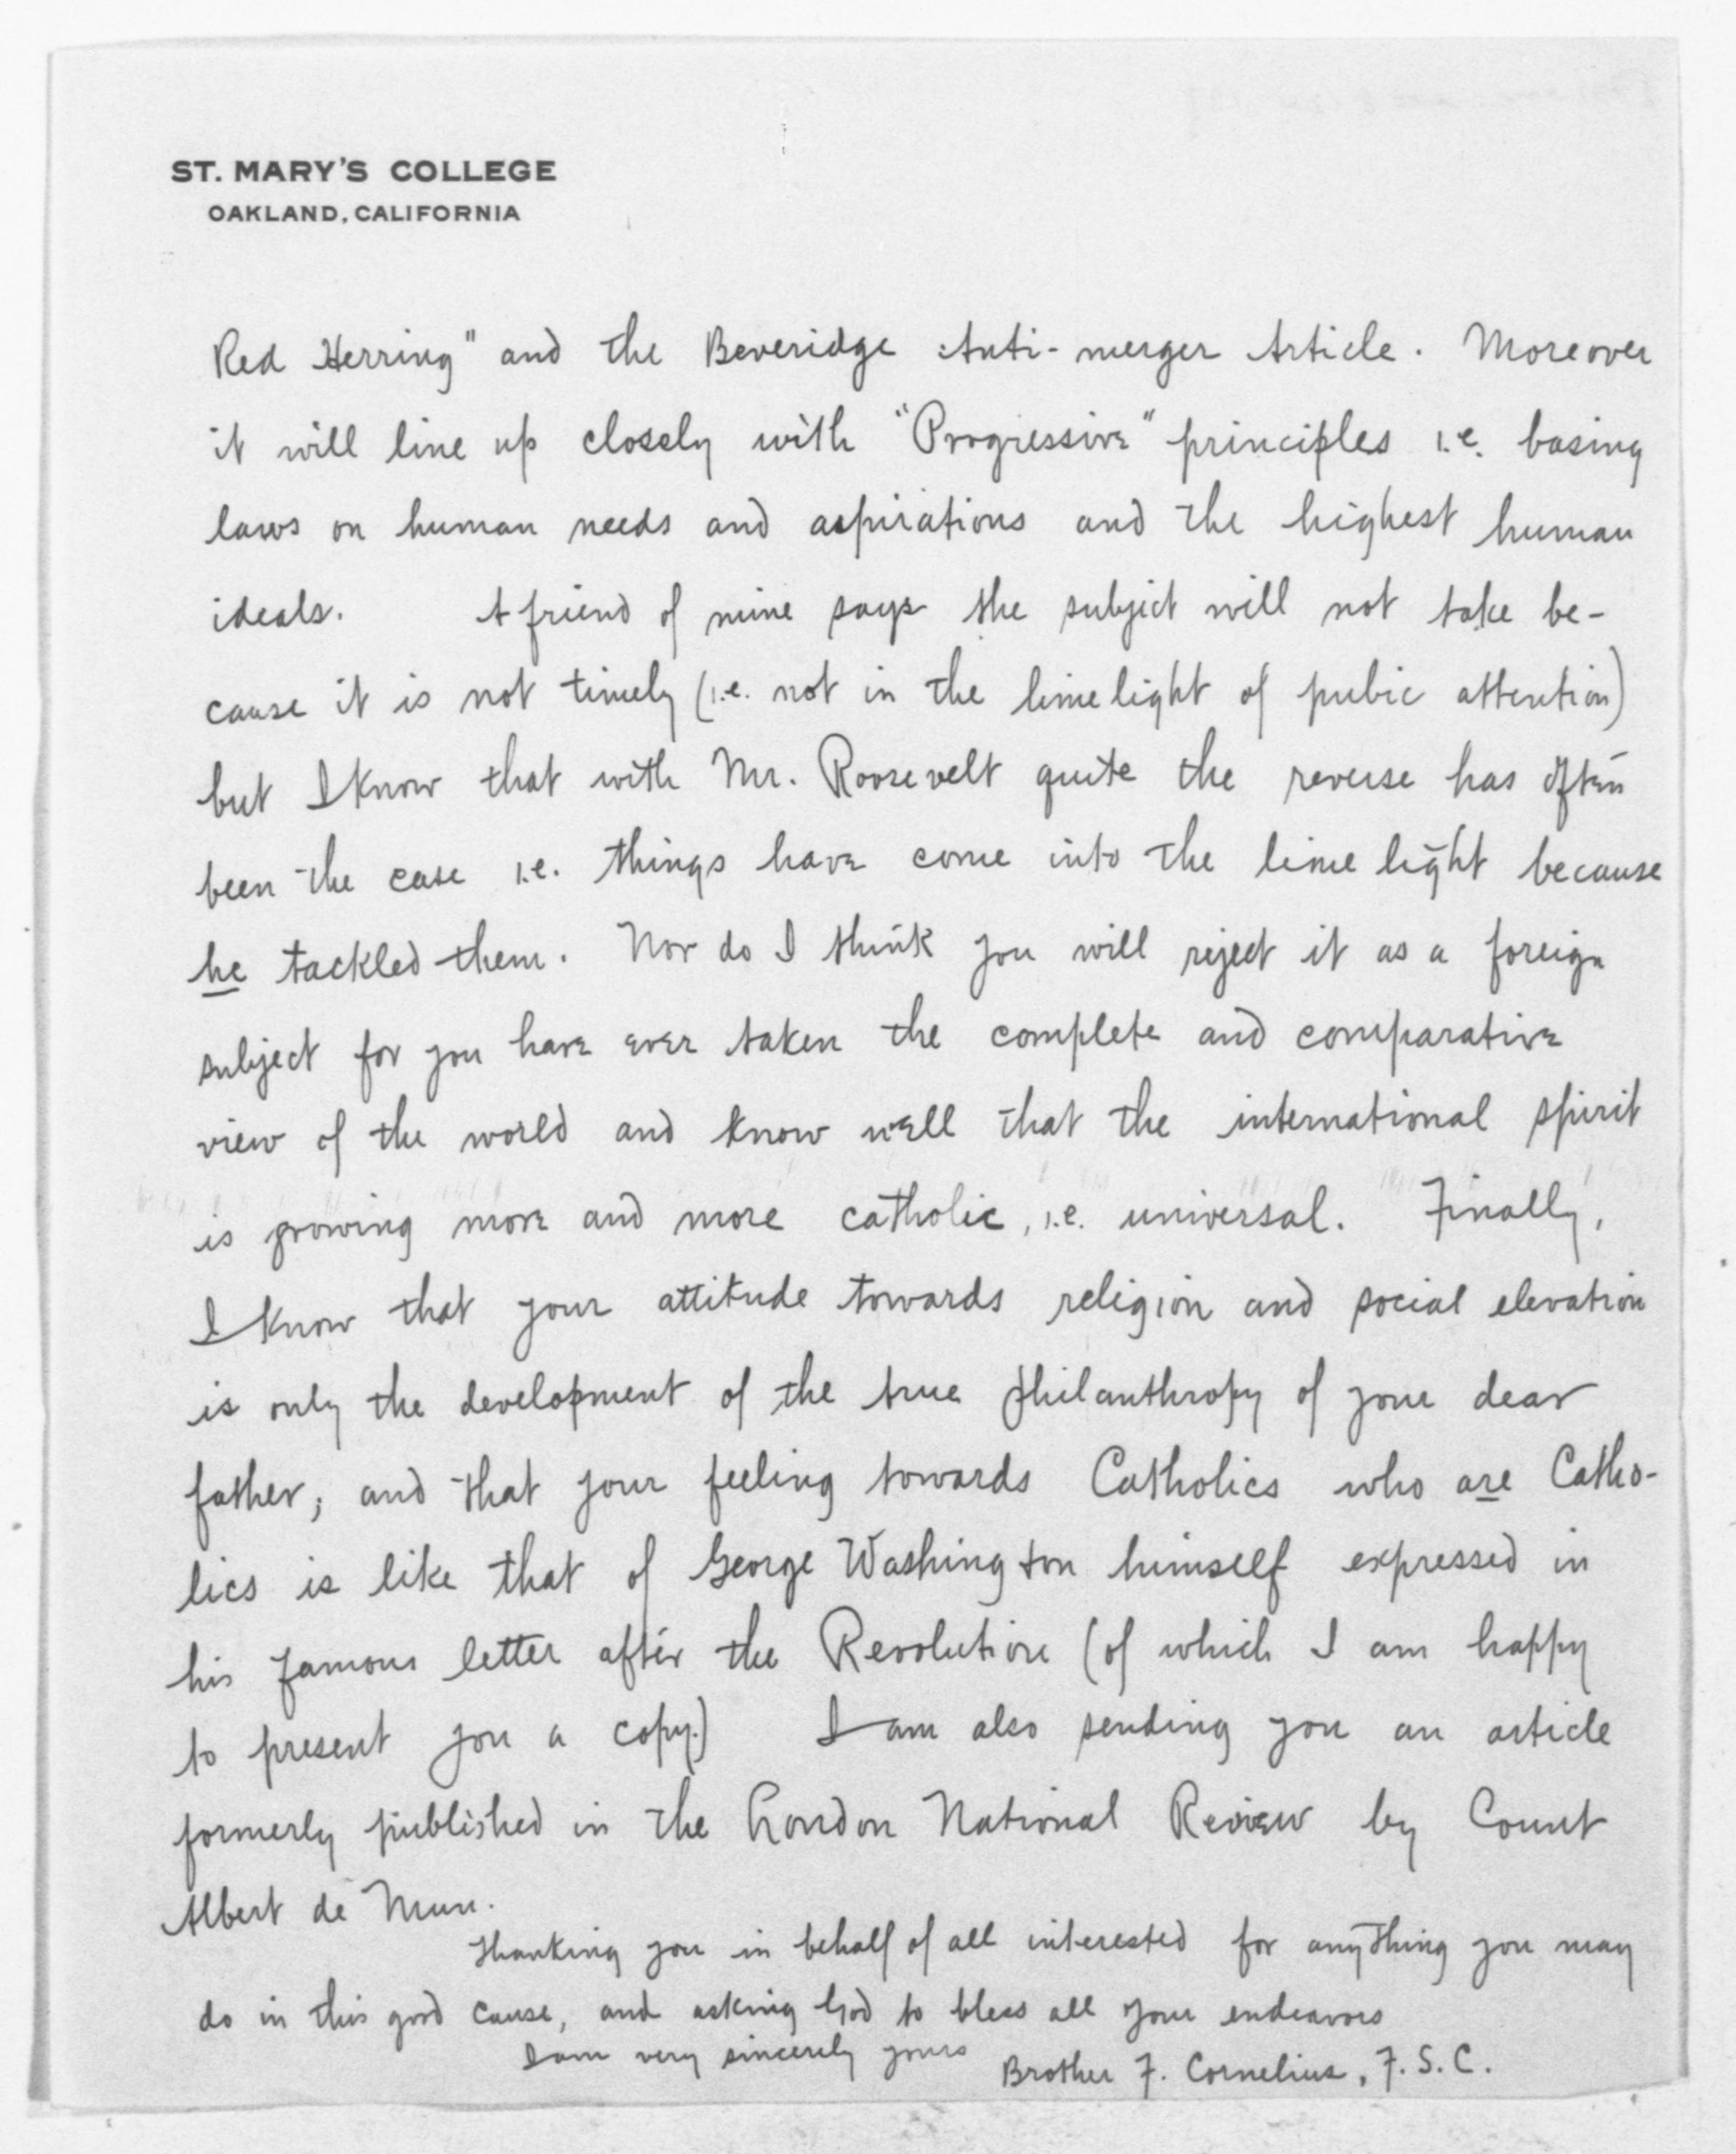 ST. MARY'S COLLEGE
OAKLAND, CALIFORNIA
Red Herring" and the Beveridge Anti-merger Article. Moreover
it will line up closely with "Progressive" principles i.e. basing
laws on human needs and aspirations and the highest human
ideals. A friend of mine says the subject will not take be-
cause it is not timely (i.e. not in the limelight of pubic attention)
but I know that with Mr. Roosevelt quite the reverse has often
been the case i.e. things have come into the lime light because
he tackled them. Nor do I think you will reject it as a foreign
subject for you have ever taken the complete and comparative
view of the world and know well that the international spirit
is growing more and more catholic, i.e. universal. Finally,
I know that your attitude towards religion and social elevation
is only the development of the true philanthropy of your dear
father, and that your feeling towards Catholics who are Catho-
lics is like that of George Washington himself expressed in
his famous letter after the Revolution (of which I am happy
to present you a copy.) I am also sending you an article
formerly published in the London National Review by Count
Albert de Mun.
Thanking you in behalf of all interested for anything you may
do in this good cause, and asking God to bless all your endeavors
I am very sincerely yours
Brother F. Cornelius, F.S.C.